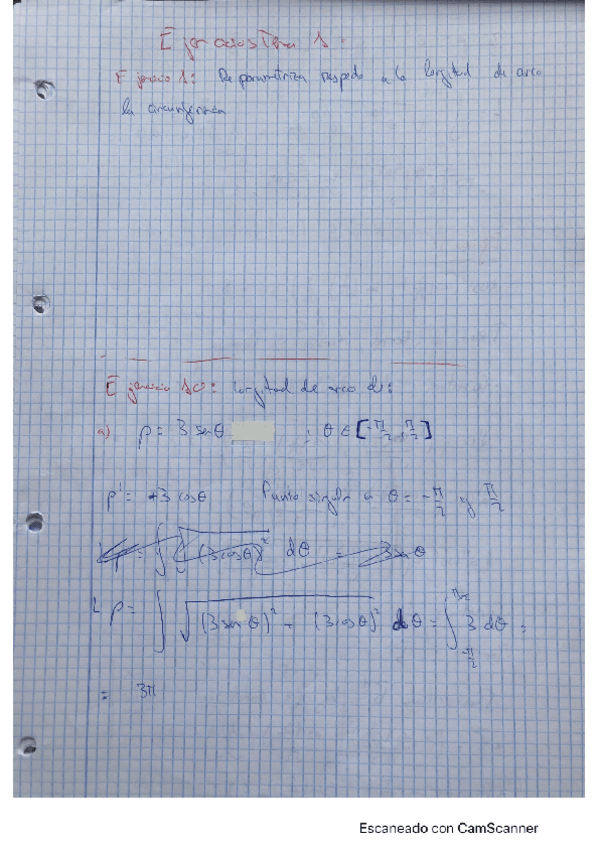 Ejercicios Tema 1.
Ejercicio 1: Reparametriza respecto a la longitud de arco
la circunferencia
Ejercicio 10: Longitud de arco de:
a) ρ = 3 senθ ; θ ∈ [-π/2, π/2]
ρ' = +3 cosθ Punto singular a θ = -π/2 y π/2
= ∫ √(3cosθ)² dθ = 3senθ
Lρ = ∫ √(3senθ)² + (3cosθ)² dθ = ∫_{-π/2}^{π/2} 3 dθ =
= 3π
Escaneado con CamScanner